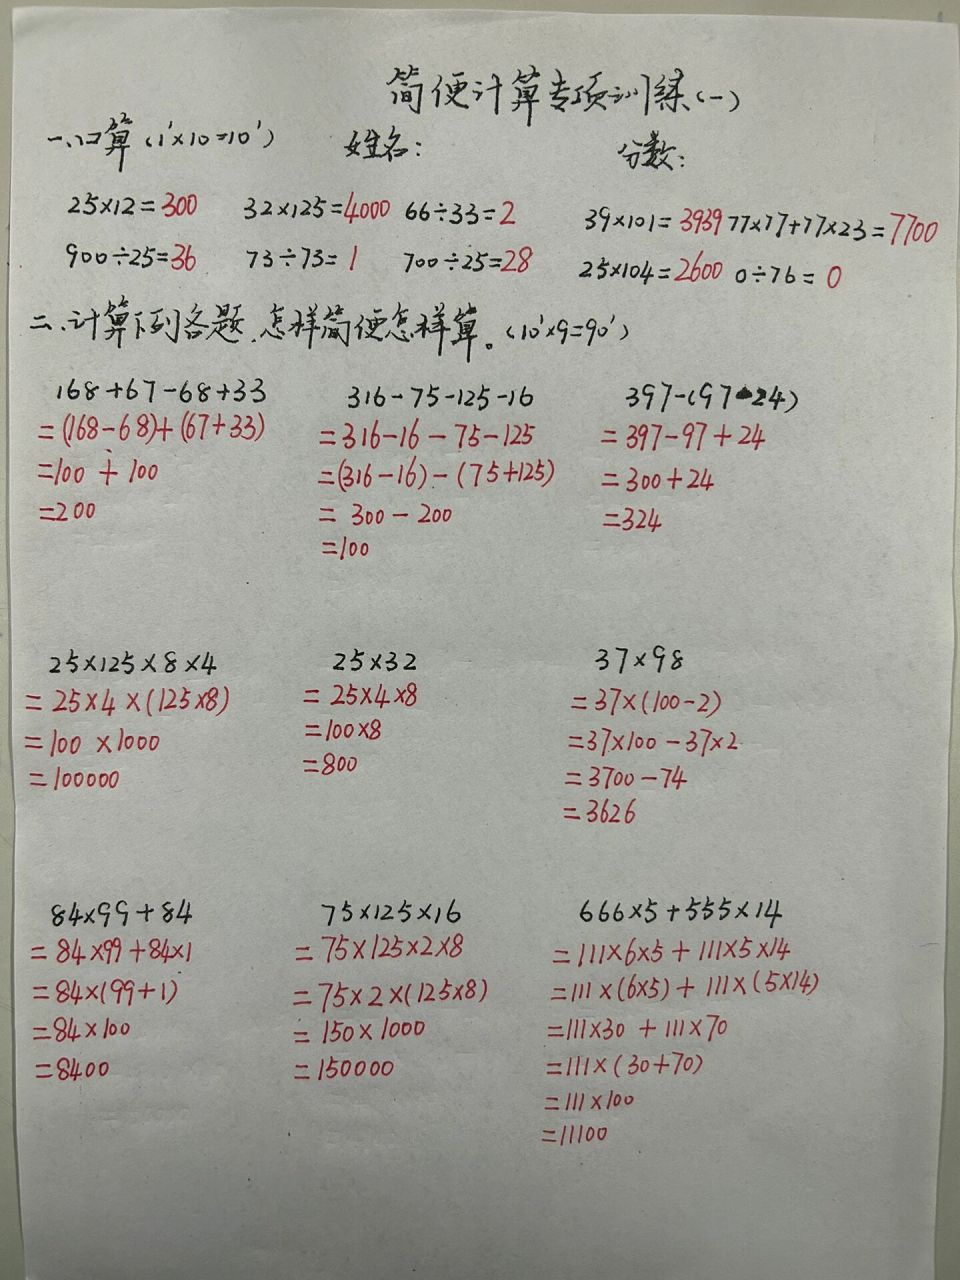 简便计算专项训练(一)
一、口算(1'×10=10') 姓名: 分数:
25×12=300 32×125=4000 66÷33=2 39×101=3939 77×77+77×23=7700
900÷25=36 73÷73=1 700÷25=28 25×104=2600 0÷76=0
二、计算下列各题,怎样简便怎样算。(10'×9=90')
168+67-68+33
=(168-68)+(67+33)
=100+100
=200
316-75-125-16
=316-16-75-125
=(316-16)-(75+125)
=300-200
=100
397-(97-24)
=397-97+24
=300+24
=324
25×125×8×4
=25×4×(125×8)
=100×1000
=100000
25×32
=25×4×8
=100×8
=800
37×98
=37×(100-2)
=37×100-37×2
=3700-74
=3626
84×99+84
=84×99+84×1
=84×(99+1)
=84×100
=8400
75×125×16
=75×125×2×8
=75×2×(125×8)
=150×1000
=150000
666×5+555×14
=111×6×5+111×5×14
=111×(6×5)+111×(5×14)
=111×30+111×70
=111×(30+70)
=111×100
=11100